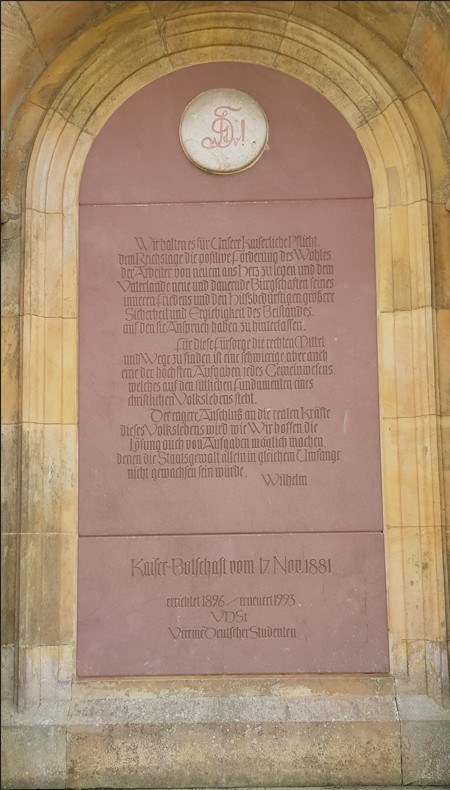 Wir halten es für Unsere Kaiserliche Pflicht,
dem Reichstage die positive Förderung des Wohles
der Arbeiter von neuem ans Herz zu legen und dem
Vaterlande neue und dauernde Bürgschaften seines
inneren Friedens und den Hilfsbedürftigen größere
Sicherheit und Ergiebigkeit des Beistandes,
auf den sie Anspruch haben zu hinterlassen.
Für diese Fürsorge die rechten Mittel
und Wege zu finden ist eine schwierige, aber auch
eine der höchsten Aufgaben jedes Gemeinwesens,
welches auf den sittlichen Fundamenten eines
christlichen Volkslebens steht.
Der engere Anschluß an die realen Kräfte
dieses Volkslebens wird wie Wir hoffen die
Lösung auch von Aufgaben möglich machen,
denen die Staatsgewalt allein in gleichem Umfange
nicht gewachsen sein würde.
Wilhelm
Kaiser-Botschaft vom 17 Nov. 1881
errichtet 1896 / erneuert 1993
VDSt
Vereine Deutscher Studenten